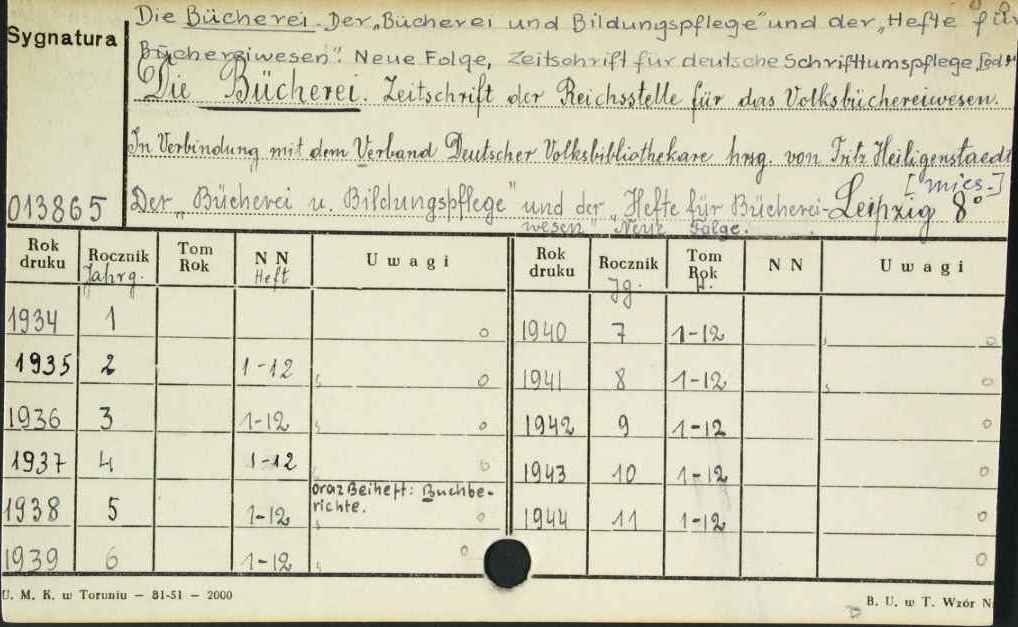 Sygnatura
Die Bücherei. Der „Bücherei und Bildungspflege" und der „Hefte für
Büchereiwesen". Neue Folge, Zeitschrift für deutsche Schrifttumspflege
Die Bücherei. Zeitschrift der Reichsstelle für das Volksbüchereiwesen.
In Verbindung mit dem Verband Deutscher Volksbibliothekare hrsg. von Fritz Heiligenstaedt
[mies.]
013865 Der „Bücherei u. Bildungspflege" und der „Hefte für Bücherei- Leipzig 8°
wesen" Neue Folge.
Rok druku Rocznik Jahrg. Tom Rok NN Heft Uwagi Rok druku Rocznik Jg. Tom Rok NN Uwagi
1934 1 o 1940 7 1-12 o
1935 2 1-12 o 1941 8 1-12 o
1936 3 1-12 o 1942 9 1-12 o
1937 4 1-12 o 1943 10 1-12 o
oraz Beiheft: Buchbe-
richte.
1938 5 1-12 o 1944 11 1-12 o
1939 6 1-12 o o
U. M. K. w Toruniu – 81-51 – 2000
B. U. w T. Wzór N